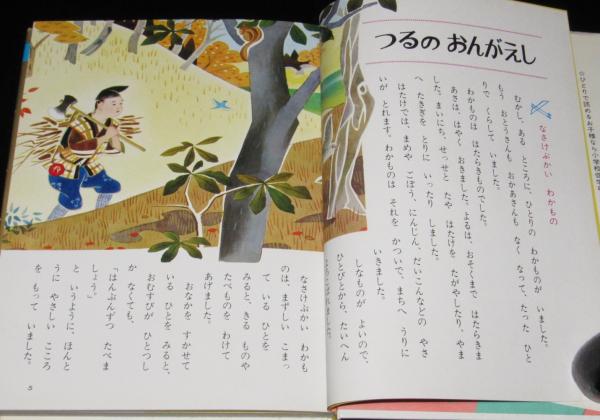 つるの おんがえし
なさけぶかい わかもの
むかし、ある ところに、ひとりの わかものが いました。
もう おとうさんも おかあさんも なく なって、たった ひと
りで くらして いました。
わかものは はたらきものでした。
あさは、はやく おきました。よるは、おそくまで はたらきま
した。まいにち、せっせと たや はたけを たがやしたり、やま
へ たきぎを とりに いったり しました。
はたけでは、まめや ごぼう、にんじん、だいこんなどの やさ
いが とれます。わかものは それを かついで、まちへ うりに
いきました。
しなものが よいので、
ひとびとから、たいへん
なさけぶかい わかも
のは、まずしい こまっ
て いる ひとを
みると、きる ものや
たべものを わけて
あげました。
おなかを すかせて
いる ひとを みると、
おむすびが ひとつし
か なくても、
「はんぶんずつ たべま
しょう。」
と いうように、ほんと
うに やさしい こころ
を もって いました。
5